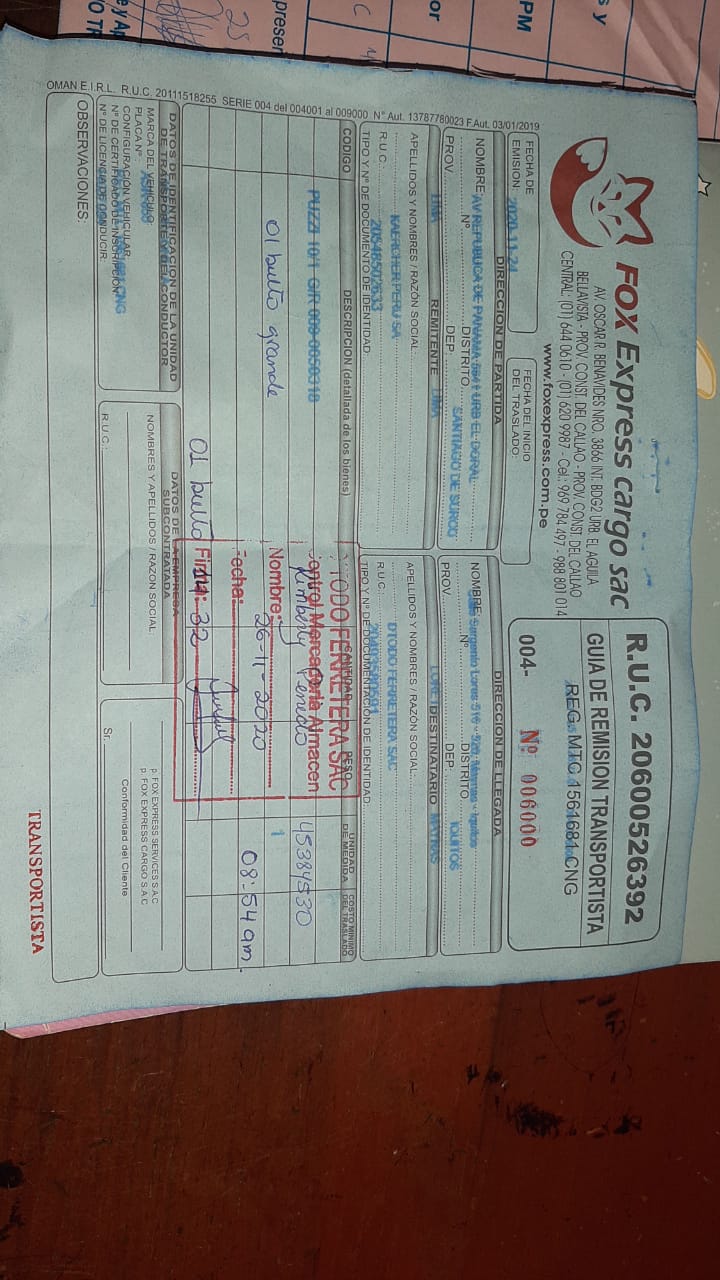 FOX Express cargo sac
AV. OSCAR R. BENAVIDES NRO. 3866 INT. BDG2 URB. EL AGUILA
BELLAVISTA - PROV. CONST. DEL CALLAO - PROV. CONST. DEL CALLAO
CENTRAL: (01) 644 0610 - (01) 620 9987 - Cel.: 969 784 497 - 988 801 014
www.foxexpress.com.pe
R.U.C. 20600526392
GUIA DE REMISION TRANSPORTISTA
REG. MTC 1561681 CNG
004- Nº 006000
FECHA DE EMISION: 2020-11-24
FECHA DEL INICIO DEL TRASLADO:
DIRECCION DE PARTIDA
NOMBRE: AV REPUBLICA DE PANAMA URB EL DORAL
Nº DISTRITO SANTIAGO DE SURCO
PROV. LIMA DEP. LIMA
DIRECCION DE LLEGADA
NOMBRE: Sargento Lores
Nº DISTRITO IQUITOS
PROV. DEP.
REMITENTE
APELLIDOS Y NOMBRES / RAZÓN SOCIAL
KAERCHER PERU SA
R.U.C. 20548502633
TIPO Y Nº DE DOCUMENTO DE IDENTIDAD:
DESTINATARIO
APELLIDOS Y NOMBRES / RAZÓN SOCIAL:
DTODO FERRETERA SAC
R.U.C.
TIPO Y Nº DE DOCUMENTACIÓN DE IDENTIDAD:
CODIGO DESCRIPCION (detallada de los bienes) CANTIDAD PESO UNIDAD DE MEDIDA COSTO MINIMO DEL TRASLADO
PUZZI 10/1 GIR 009-0050318 1
01 bulto grande
TODO FERRETERA SAC
Control Mercaderia Almacen
Kimberly 45384530
Nombre:
26-11-2020
Fecha: 08:54 am.
Firma:
01 bulto
DATOS DE IDENTIFICACION DE LA UNIDAD
DE TRANSPORTE Y DEL CONDUCTOR
MARCA DEL VEHICULO:
PLACA Nº
CONFIGURACIÓN VEHICULAR:
Nº DE CERTIFICADO DE INSCRIPCION: CNG
Nº DE LICENCIA DE CONDUCIR:
DATOS DE LA EMPRESA
SUBCONTRATADA
NOMBRES Y APELLIDOS / RAZON SOCIAL:
R.U.C.:
p. FOX EXPRESS SERVICES S.A.C
p. FOX EXPRESS CARGO S.A.C
Conformidad del Cliente
Sr.
OBSERVACIONES:
OMAN E.I.R.L. R.U.C. 20111518255 SERIE 004 del 004001 al 009000 Nº Aut. 13787780023 F.Aut. 03/01/2019
TRANSPORTISTA